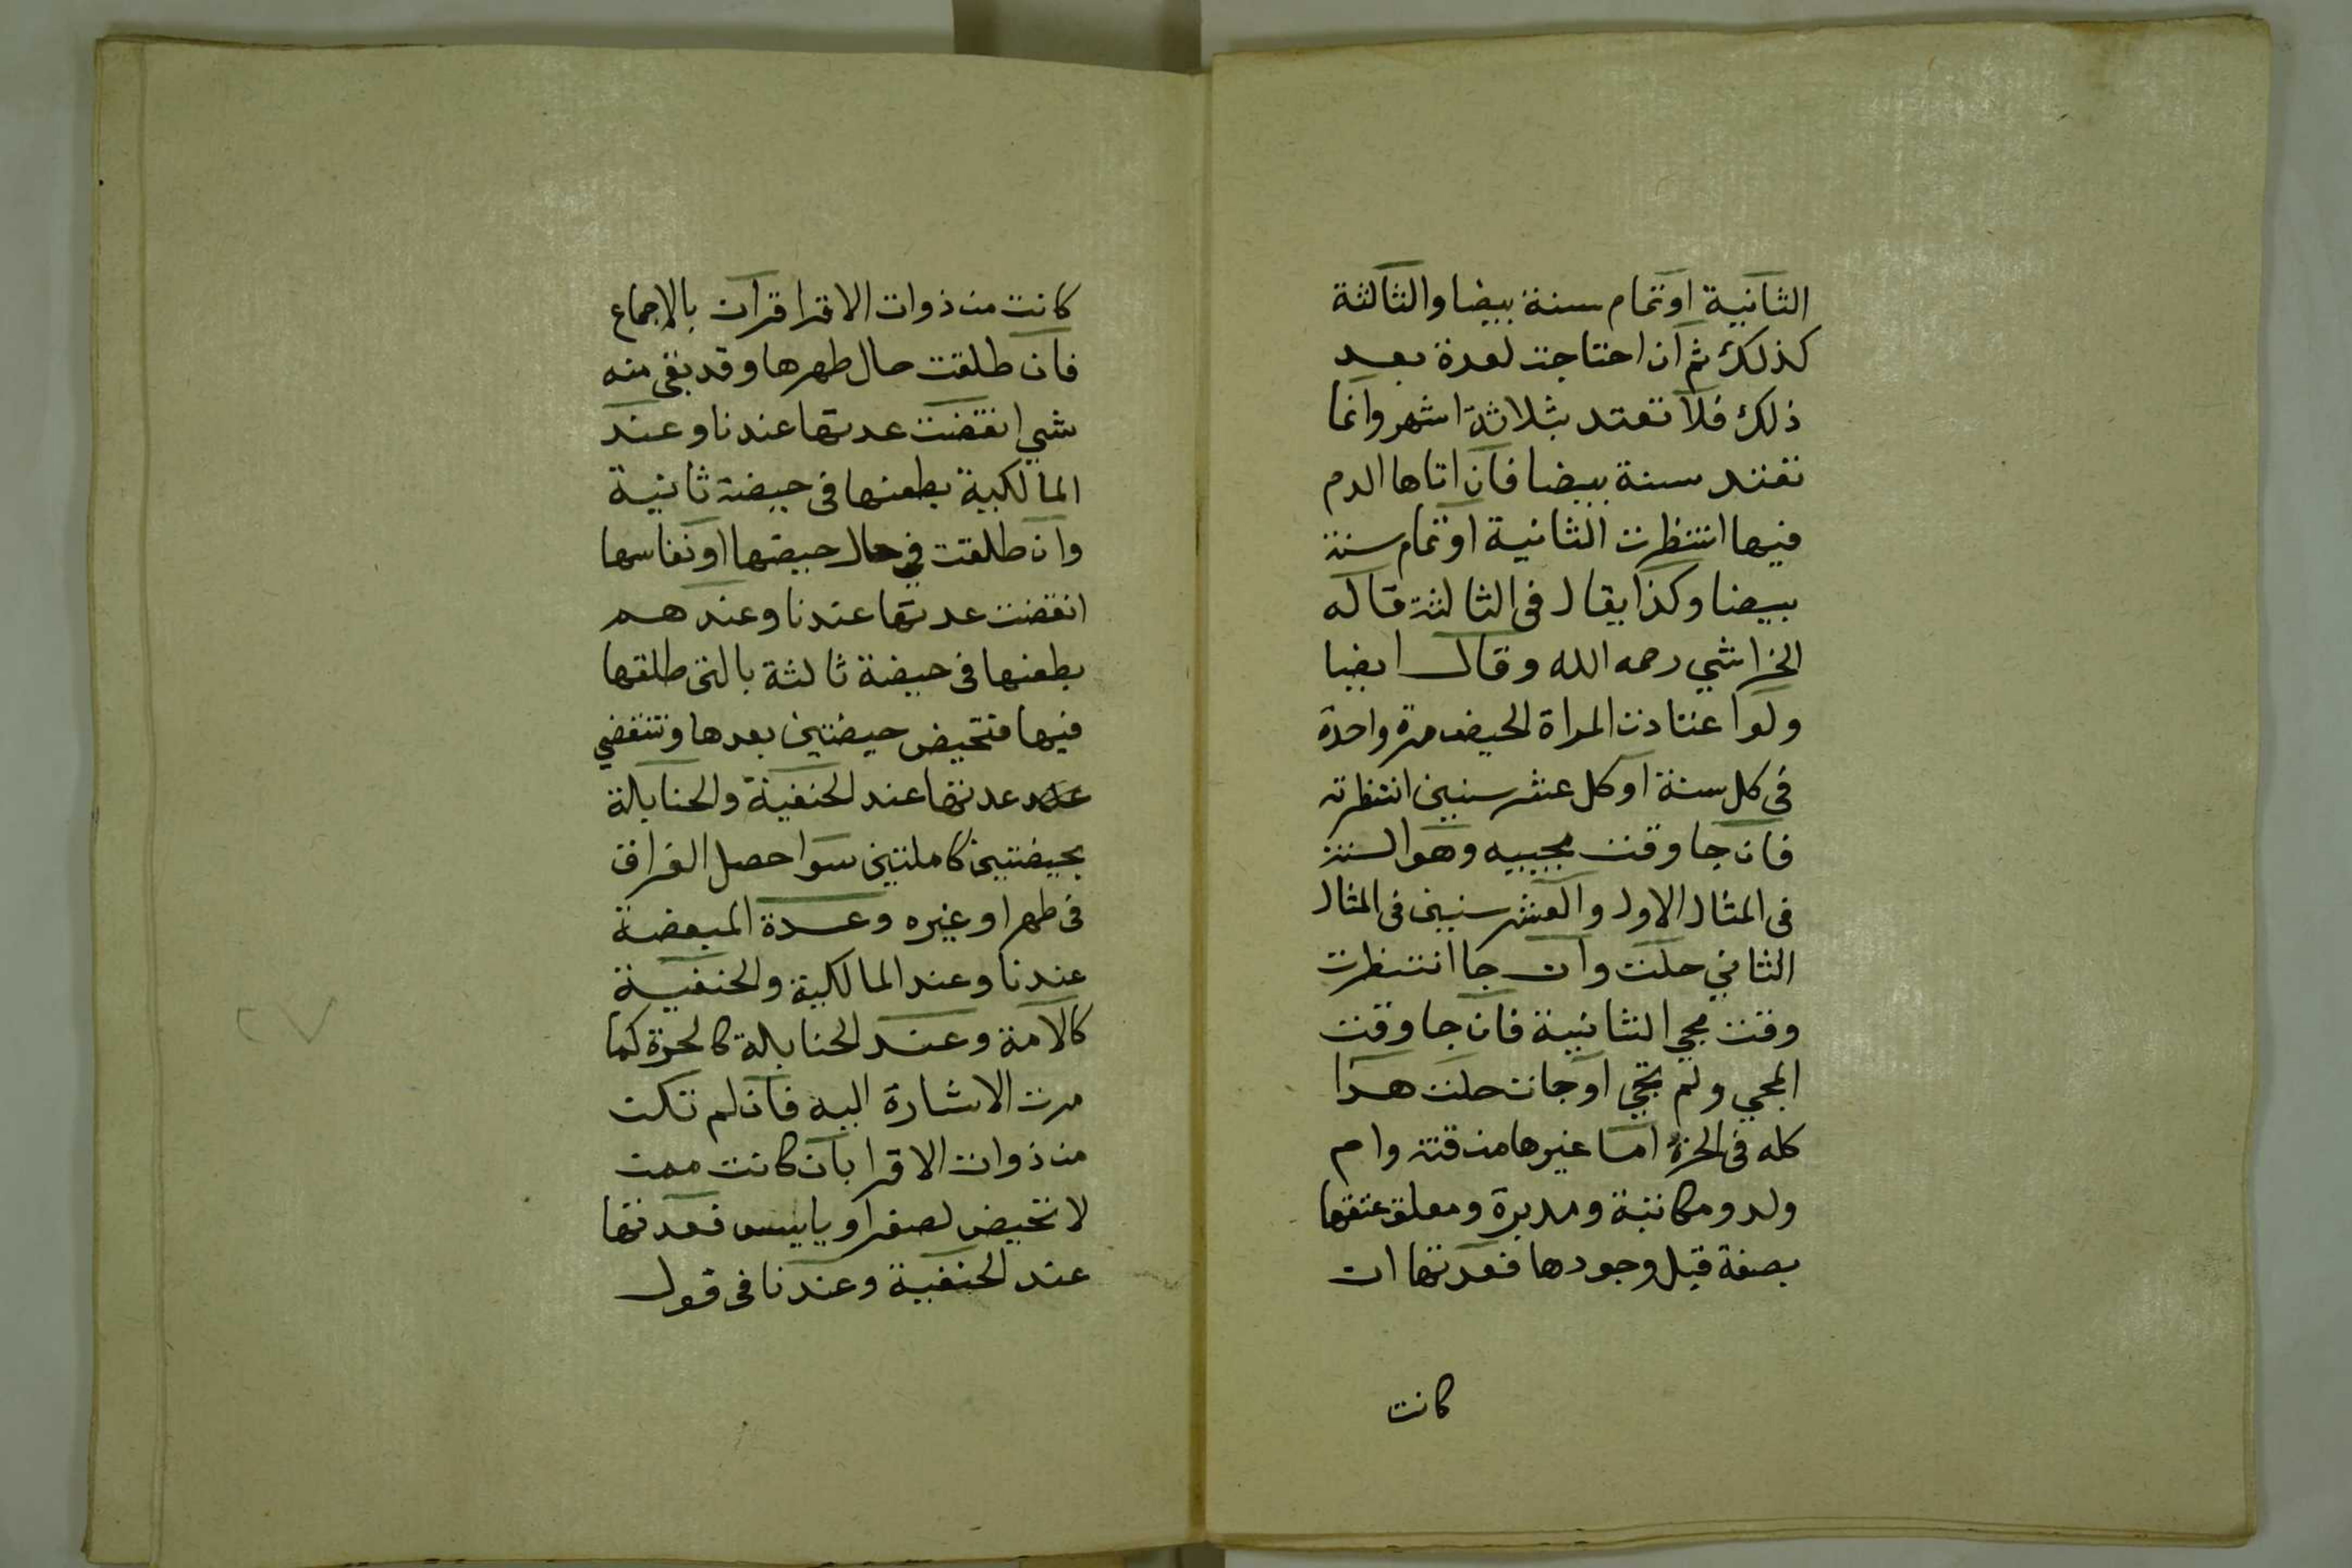 الثانية او تمام سنة بيضا والثالثة
كذلك ثم ان احتاجت لعدة بعد
ذلك فلا تعتد بثلاثة اشهر وانما
تعتد سنة بيضا فان اتاها الدم
فيها انتظرت الثانية او تمام سنة
بيضا وكذا يقال في الثالثة قاله
الخراشي رحمه الله وقال ايضا
ولو اعتادت المراة الحيض مرة واحدة
في كل سنة او كل عشر سنين انتظرته
فان جا وقت مجييه وهو السنة
في المثال الاول والعشر سنين في المثال
الثاني حلت وان جا انتظرت
وقت مجي الثانية فان جا وقت
المجي ولم يجي او جات حلت هذا
كله في الحرة اما غيرها من قنة وام
ولد ومكاتبة ومدبرة ومعلق عتقها
بصفة قبل وجودها فعدتها ان
كانت
كانت من ذوات الاقرا قرآن بالاجماع
فان طلقت حال طهرها وقد بقي منه
شي انقضت عدتها عندنا وعند
المالكية بطعنها في حيضة ثانية
وان طلقت في حال حيضها او نفاسها
انقضت عدتها عندنا وعندهم
بطعنها في حيضة ثالثة بالتي طلقها
فيها فتحيض حيضتين بعدها وتنقضي
عدتها عند الحنفية والحنابلة
بحيضتين كاملتين سوا حصل الفراق
في طهر او غيره وعدة المبعضة
عندنا وعند المالكية والحنفية
كالامة وعند الحنابلة كالحرة كما
مرت الاشارة اليه فان لم تكن
من ذوات الاقرا بان كانت ممن
لا تحيض لصغر او ياييس فعدتها
عند الحنفية وعندنا في قول